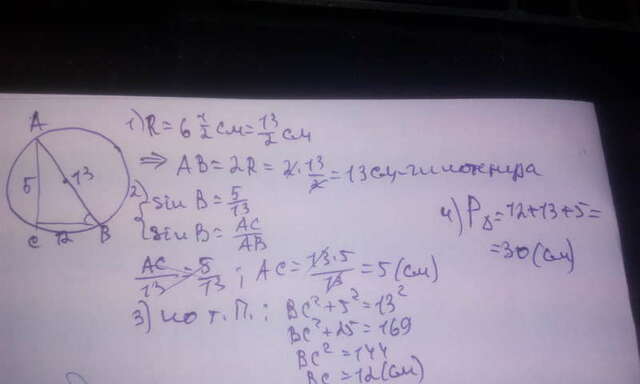 A
5
13
C
12
B
1) R = 6 1/2 см = 13/2 см
⇒ AB = 2R = 2 · 13/2 = 13 см - гипотенуза
2) { sin B = 5/13
sin B = AC/AB
AC/13 = 5/13 ; AC = 13·5/13 = 5 (см)
3) по т. П. : BC² + 5² = 13²
BC² + 25 = 169
BC² = 144
BC = 12 (см)
4) P△ = 12 + 13 + 5 =
= 30 (см)